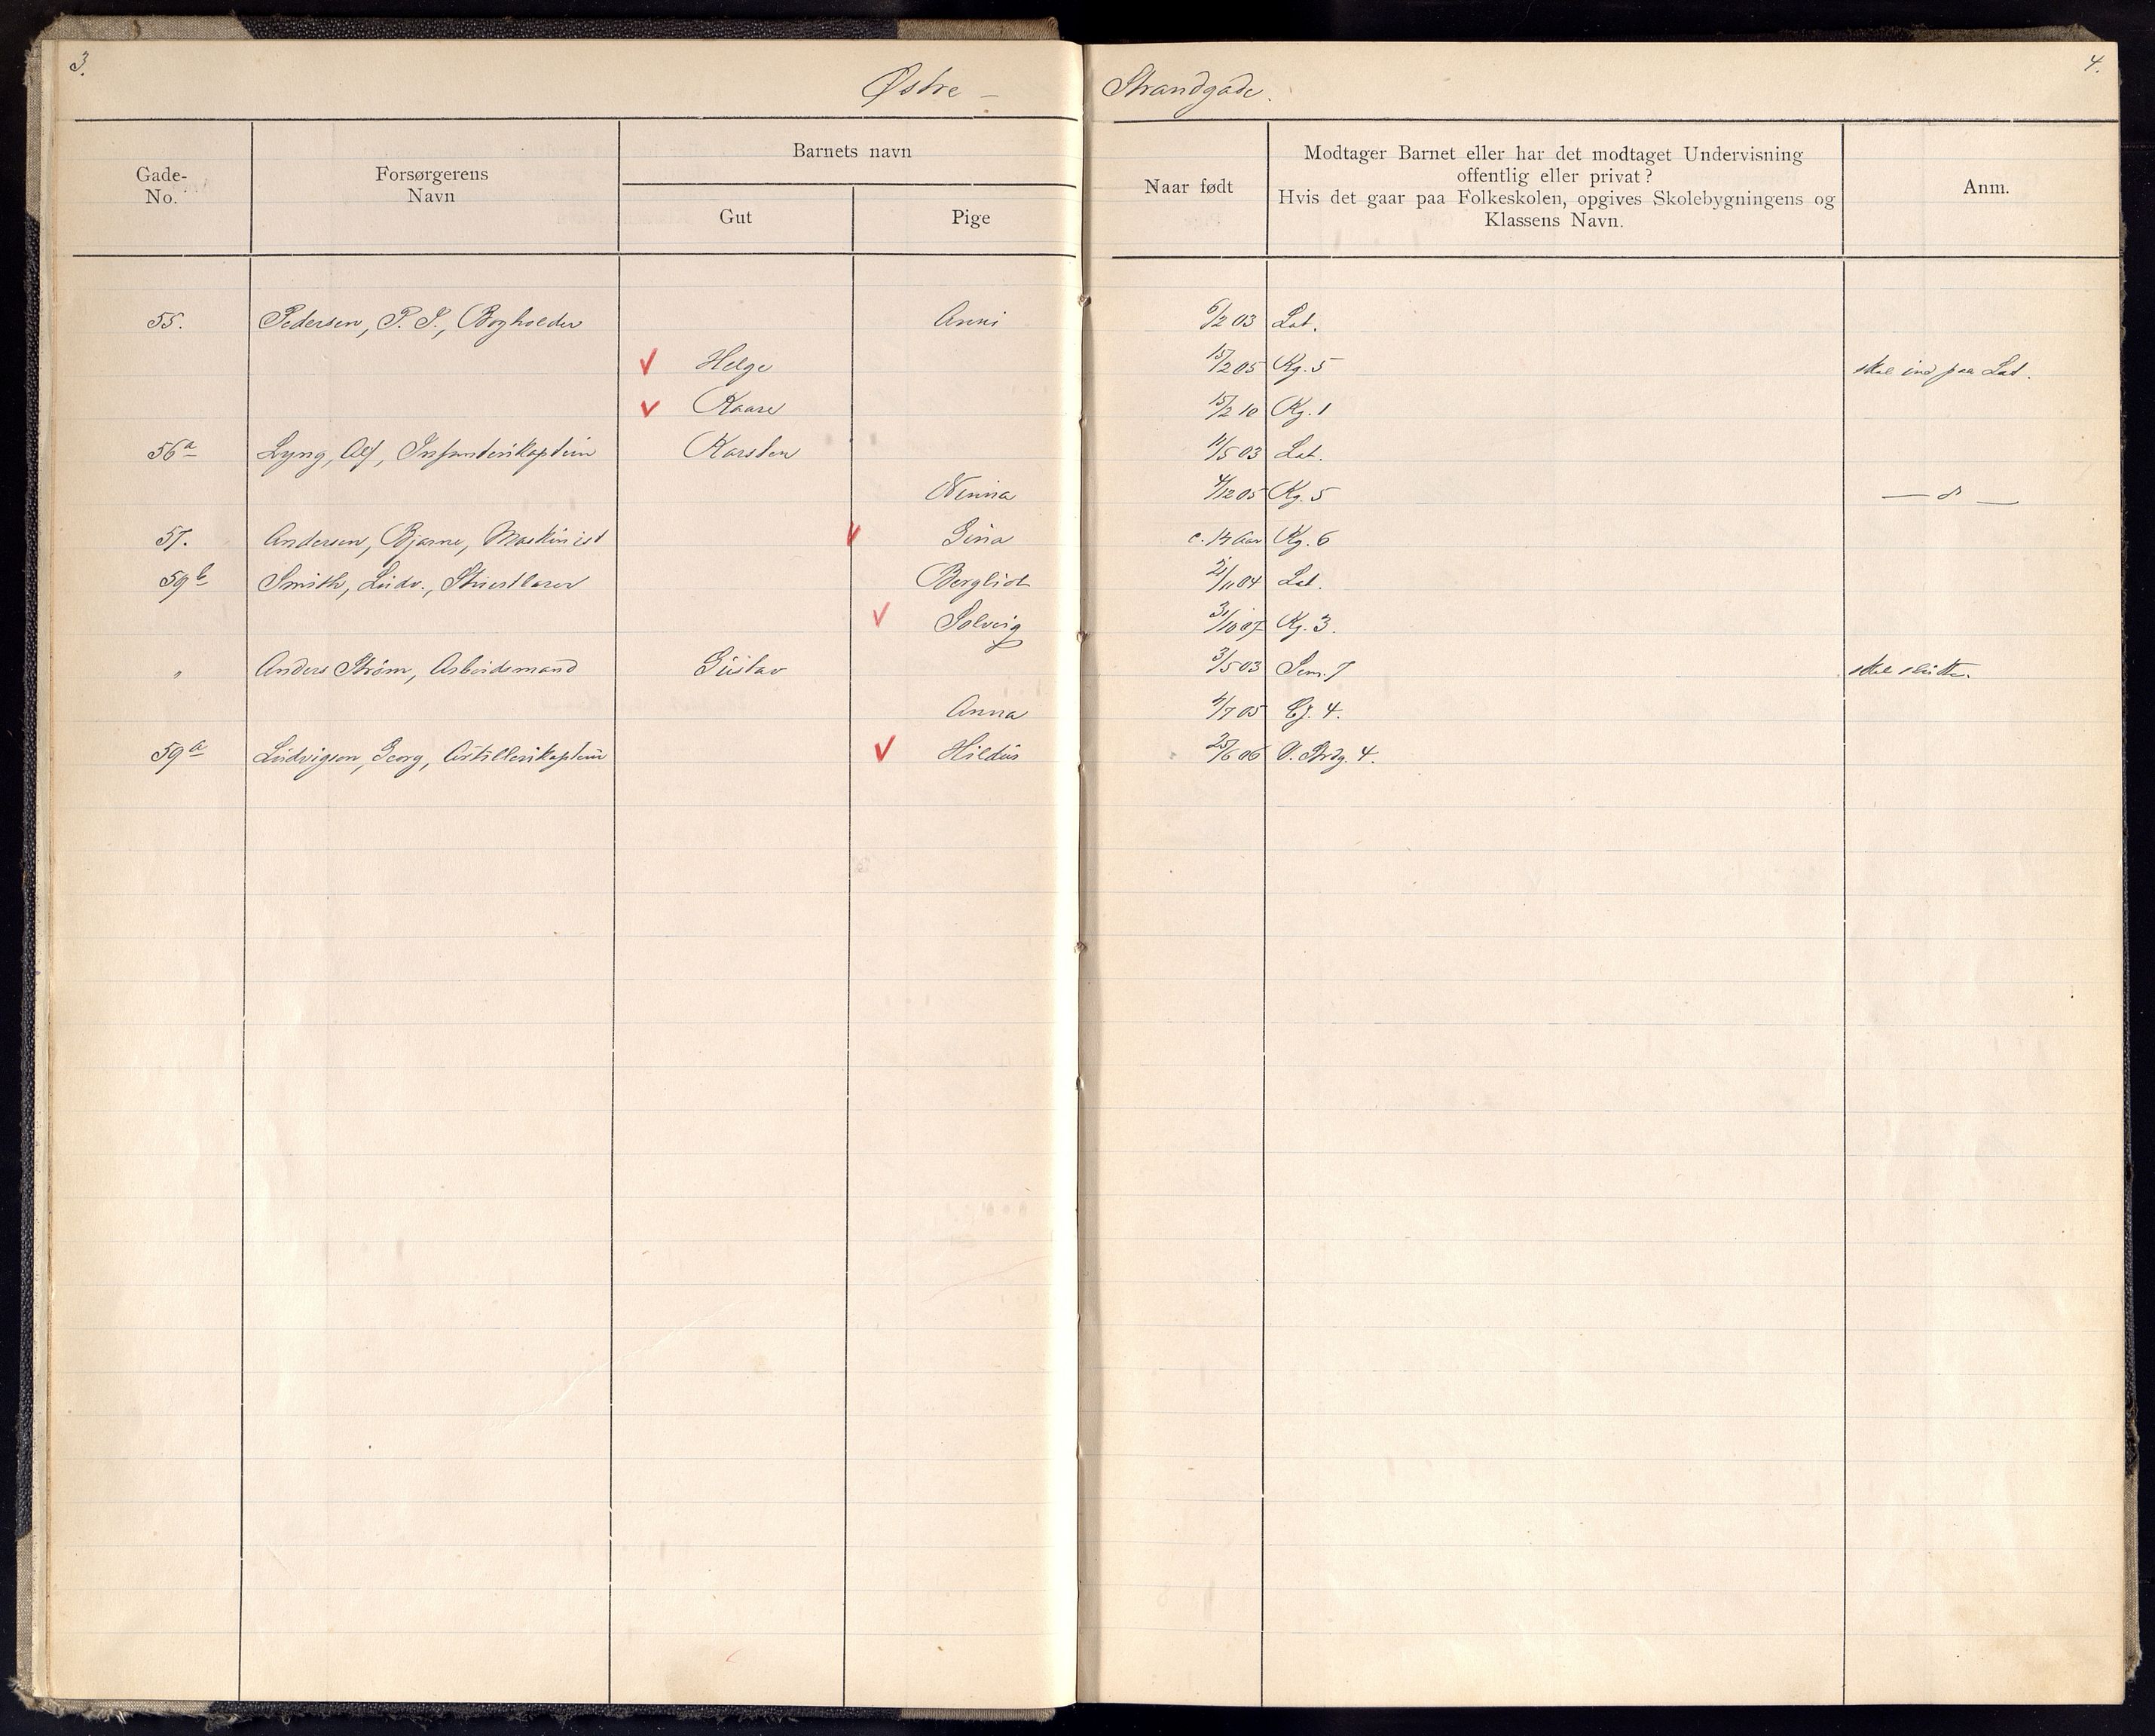 3.
4.
Østre - Strandgade.
Gade-No.
Forsørgerens Navn
Barnets navn
Gut
Pige
Naar født
Modtager Barnet eller har det modtaget Undervisning
offentlig eller privat?
Hvis det gaar paa Folkeskolen, opgives Skolebygningens og
Klassens Navn.
Anm.
55. Pedersen, P. S., Bogholder Anni 6/2 03 Lat.
Helge 15/2 05 Kg. 5 skal ind paa Lat.
Kaare 15/2 10 Kg. 1
56a Lyng, Alf, Infanterikaptein Karsten 11/5 03 Lat.
Ninna 4/12 05 Kg. 5 — " —
57. Andersen, Bjarne, Maskinist Gina c. 14 Aar Kg. 6
59b Smith, Ludv., Bergliot 2/11 04 Lat.
Solveig 31/10 07 Kg. 3.
" Anders Strøm, Arbeidsmand Gustav 3/5 03 Sem. 7 skal slutte.
Anna 4/7 05 4.
59a Ludvigson, Georg, Artillerikaptein Hildur 25/6 06 V. Strdg. 4.